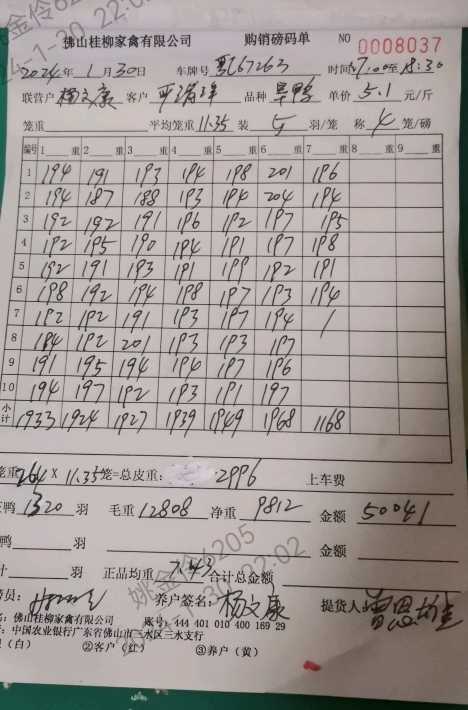 佛山桂柳家禽有限公司 购销磅码单 NO 0008037
2024年1月30日 车牌号 67263 时间17:00至18:30
联营户 杨文康 客户 品种 旱鸭 单价 5.1 元/斤
笼重 平均笼重 11.35 装 5 羽/笼 称 4 笼/磅
编号 1 重 2 重 3 重 4 重 5 重 6 重 7 重 8 重 9 重
1 194 191 193 194 198 201 196
2 194 187 188 193 194 204 194
3 192 192 191 196 192 197 195
4 192 195 190 194 191 197 198
5 192 191 193 191 199 192 191
6 198 192 194 198 197 193 194
7 192 192 191 193 197 194 /
8 194 192 201 193 193 197
9 191 195 194 194 197 196
10 194 197 192 193 191 197
小计 1933 1924 1927 1939 1949 1968 1168
笼重 264 X 11.35 笼=总皮重: 2996 上车费
鸭 1320 羽 毛重 12808 净重 9812 金额 50041
鸭 羽 金额
计 羽 正品均重 7.43 合计总金额
员: 养户签名: 杨文康 提货人:
佛山桂柳家禽有限公司 账号: 444 401 010 400 169 29
中国农业银行广东省佛山市三水区三水支行
(白) ②客户(红) ③养户(黄)
姚金伶6205